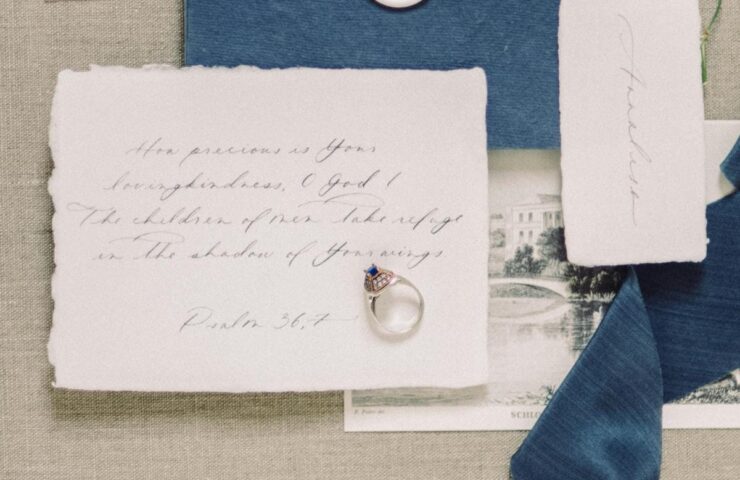 How precious is Your
lovingkindness, O God!
The children of men take refuge
in the shadow of Your wings.
Psalm 36,7
SCHLO